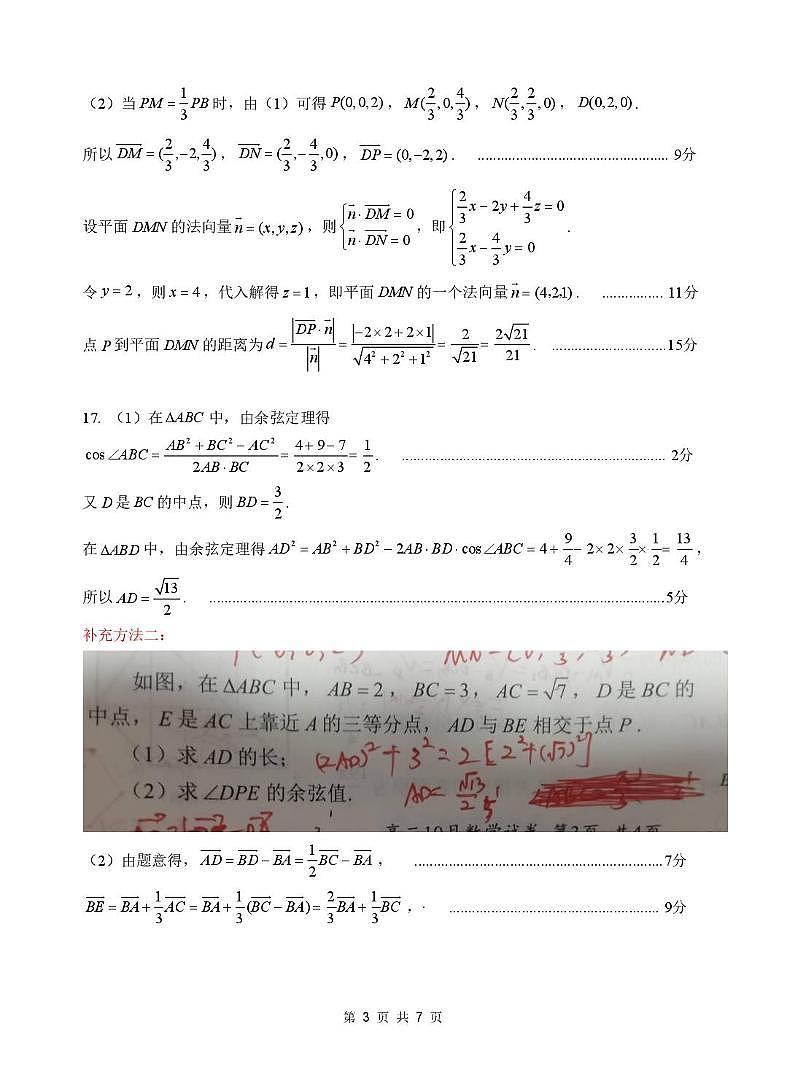 （2）当 PM = 1/3 PB 时，由（1）可得 P(0,0,2)，M(2/3,0,4/3)，N(2/3,2/3,0)，D(0,2,0).
所以 \overline{DM} = (2/3,-2,4/3)，\overline{DN} = (2/3,-4/3,0)，\overline{DP} = (0,-2,2). .................................................. 9分
设平面 DMN 的法向量 \vec{n} = (x,y,z)，则 { \vec{n}·\overline{DM} = 0 ; \vec{n}·\overline{DN} = 0，即 { 2/3 x - 2y + 4/3 z = 0 ; 2/3 x - 4/3 y = 0.
令 y = 2，则 x = 4，代入解得 z = 1，即平面 DMN 的一个法向量 \vec{n} = (4,2,1). ................ 11分
点 P 到平面 DMN 的距离为 d = |\overline{DP}·\vec{n}| / |\vec{n}| = |-2×2+2×1| / √(4²+2²+1²) = 2/√21 = 2√21/21. ..............................15分
17. （1）在 ΔABC 中，由余弦定理得
cos∠ABC = (AB² + BC² - AC²) / (2AB·BC) = (4+9-7) / (2×2×3) = 1/2. ..................................................................... 2分
又 D 是 BC 的中点，则 BD = 3/2.
在 ΔABD 中，由余弦定理得 AD² = AB² + BD² - 2AB·BD·cos∠ABC = 4 + 9/4 - 2×2×3/2×1/2 = 13/4，
所以 AD = √13/2. .......................................................................................................................5分
补充方法二：
如图，在 ΔABC 中，AB=2，BC=3，AC=√7，D 是 BC 的
中点，E 是 AC 上靠近 A 的三等分点，AD 与 BE 相交于点 P.
（1）求 AD 的长； (2AD)²+3²=2[2²+(√7)²]
（2）求 ∠DPE 的余弦值. AD=√13/2
高二10月数学试卷 第3页 共4页
（2）由题意得，\overline{AD} = \overline{BD} - \overline{BA} = 1/2 \overline{BC} - \overline{BA}， .................................................................7分
\overline{BE} = \overline{BA} + 1/3 \overline{AC} = \overline{BA} + 1/3(\overline{BC} - \overline{BA}) = 2/3 \overline{BA} + 1/3 \overline{BC}， ....................................................... 9分
第 3 页 共 7 页